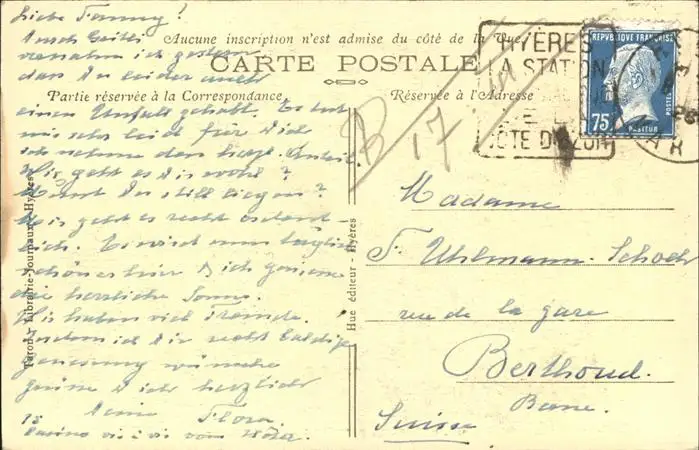 Liebe Fanny!
Durch Betli
vernahm ich gestern
dass Du leider auch
einen Unfall gehabt. Es tut
mir sehr leid für Dich
ich nehme den herzl. Anteil.
Wie geht es Dir wohl?
Musst Du still liegen?
Mir geht es recht ordent-
lich. Es wird nun täglich
schöner hier & ich geniesse
die herrliche Sonne.
Wir haben viel Freude.
Indem ich Dir recht baldige
Genesung wünsche
grüsse Dich herzlich
Deine Flora.
Casino vis à vis vom Hôtel
Aucune inscription n'est admise du côté de la Vue
CARTE POSTALE
Partie réservée à la Correspondance
Réservée à l'Adresse
Librairie-Journaux, Hyères
Hue éditeur - Hyères
B 17
HYÈRES
LA STATION
CÔTE D'AZUR
REPVBLIQUE FRANÇAISE
POSTES
75c
PASTEUR
VAR
Madame
F. Uhlmann-Schoch
rue de la gare
Berthoud.
Berne.
Suisse